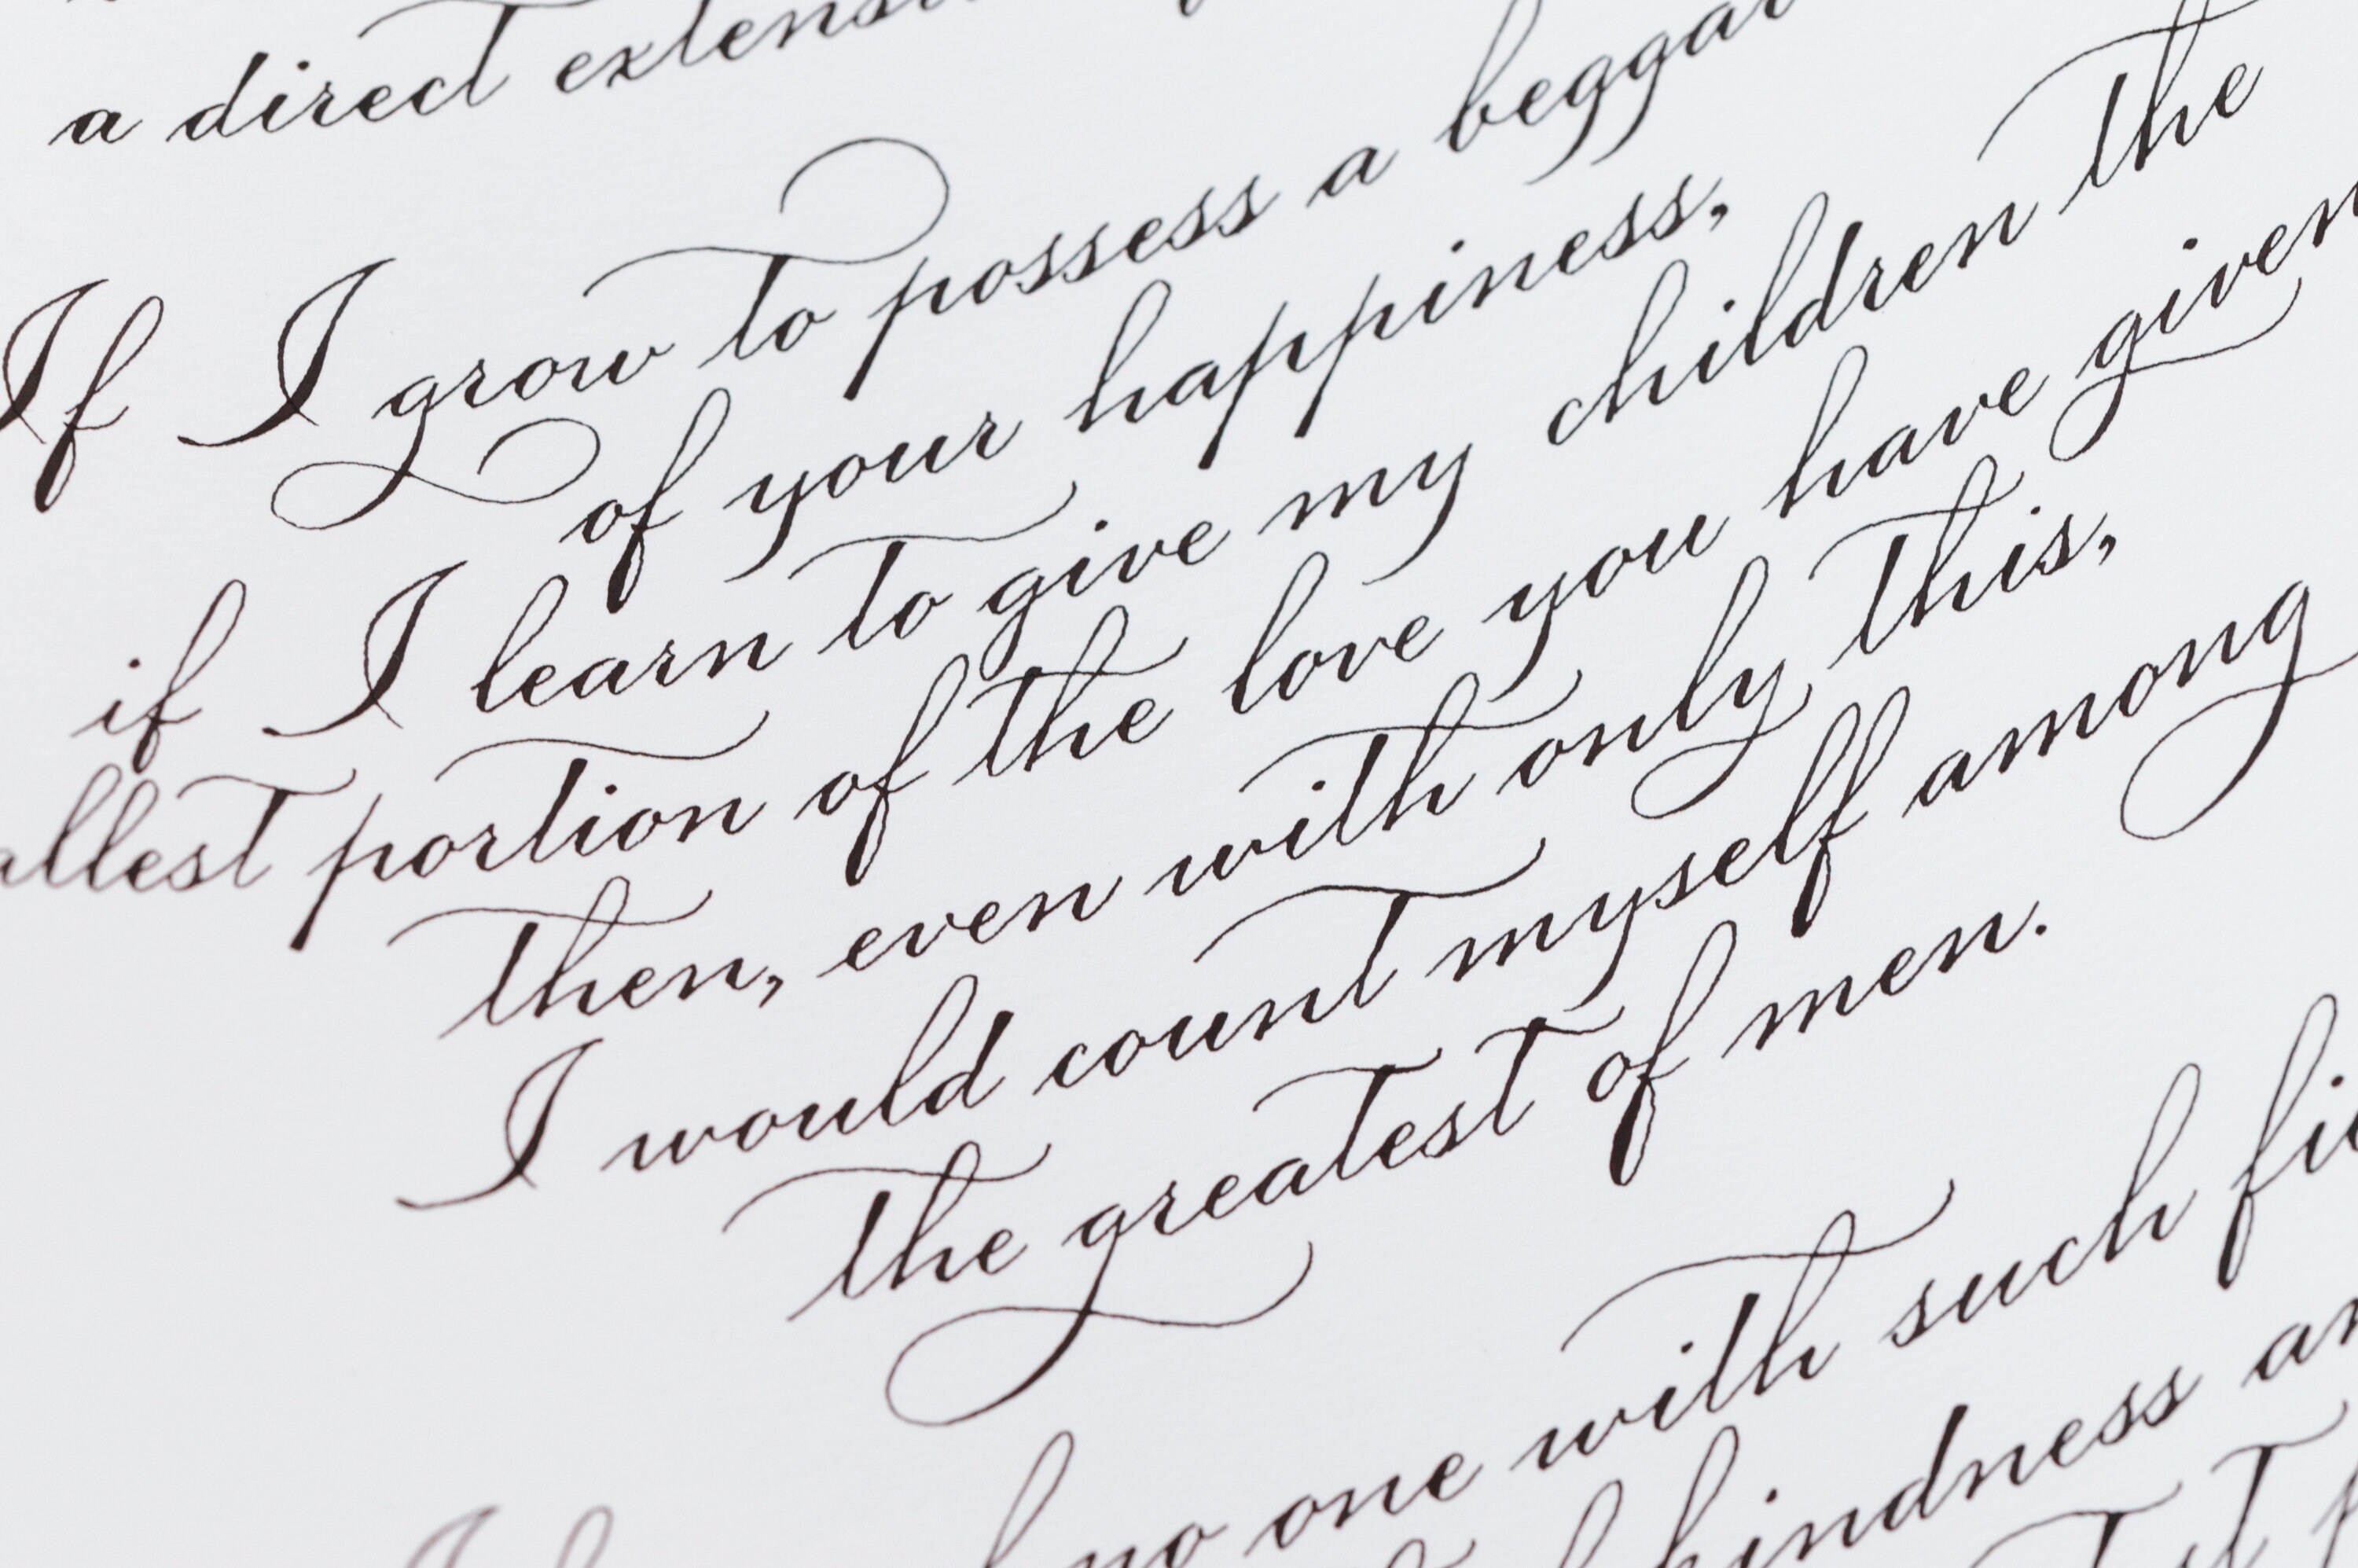 a direct
If I grow to possess a
of your happiness,
if I learn to give my children the
portion of the love you have given
then, even with only this,
I would count myself among
the greatest of men.
no one with such
kindness